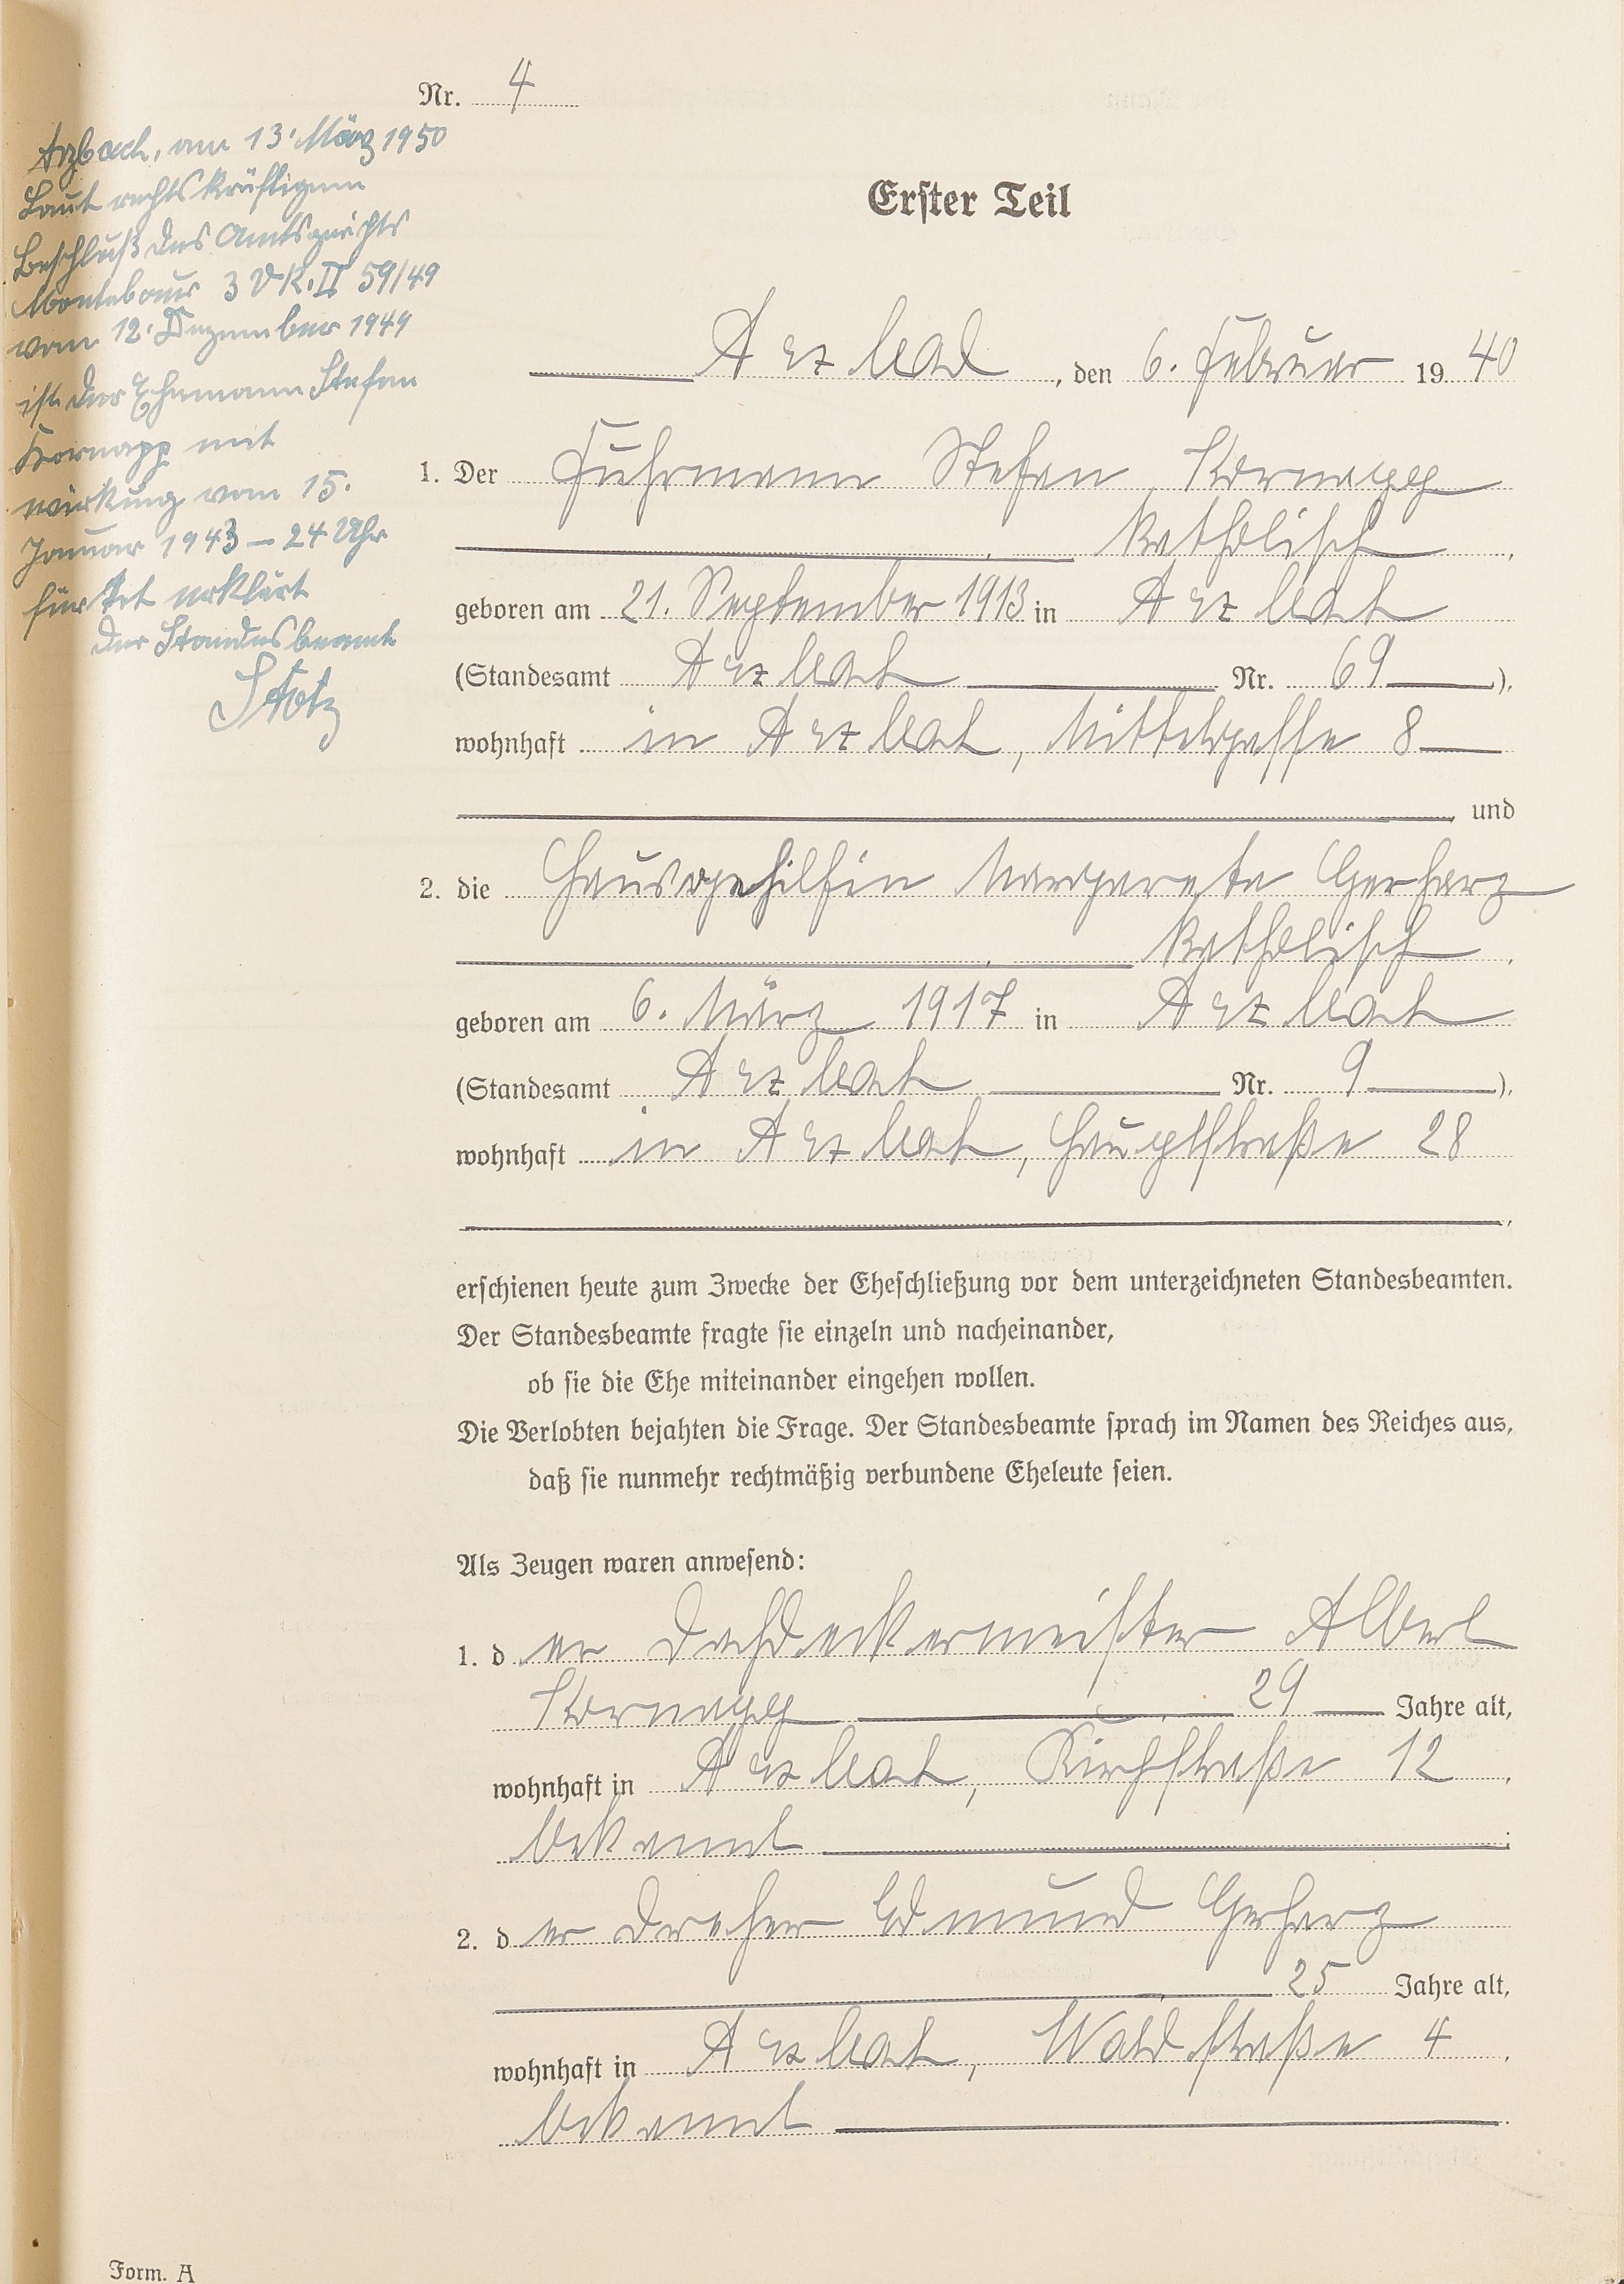 Nr. 4
Arzbach, am 13. März 1950
Laut rechtskräftigem
Beschluß des Amtsgerichts
Montabaur 3 VR. II 59/49
vom 12. Dezember 1949
ist der Ehemann Stefan
Kornapp mit
wirkung vom 15.
Januar 1943 — 24 Uhr
für Tot erklärt
der Standesbeamte
Stotz
Erster Teil
Arzbach, den 6. Februar 1940
1. Der Fuhrmann Stefan Kornapp
, katholisch,
geboren am 21. September 1913 in Arzbach
(Standesamt Arzbach Nr. 69),
wohnhaft in Arzbach, Mittelgasse 8
, und
2. die Hausgehilfin Margareta Gerharz
, katholisch,
geboren am 6. März 1917 in Arzbach
(Standesamt Arzbach Nr. 9),
wohnhaft in Arzbach, Hauptstraße 28
,
erschienen heute zum Zwecke der Eheschließung vor dem unterzeichneten Standesbeamten.
Der Standesbeamte fragte sie einzeln und nacheinander,
ob sie die Ehe miteinander eingehen wollen.
Die Verlobten bejahten die Frage. Der Standesbeamte sprach im Namen des Reiches aus,
daß sie nunmehr rechtmäßig verbundene Eheleute seien.
Als Zeugen waren anwesend:
1. der Dachdeckermeister Albert
Kornapp, 29 Jahre alt,
wohnhaft in Arzbach, Kirchstraße 12,
bekannt;
2. der Dreher Edmund Gerharz
, 25 Jahre alt,
wohnhaft in Arzbach, Waldstraße 4,
bekannt.
Form. A